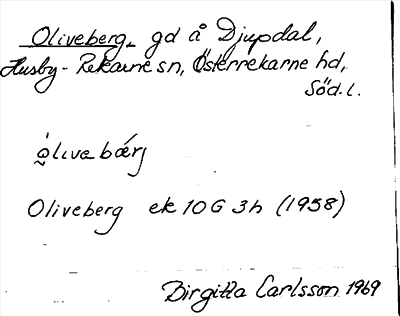 Oliveberg, gd å Djupdal,
Husby-Rekarne sn, Österrekarne hd,
Söd. l.
òlivebǽrj
Oliveberg ek 10G 3h (1958)
Birgitta Carlsson 1969